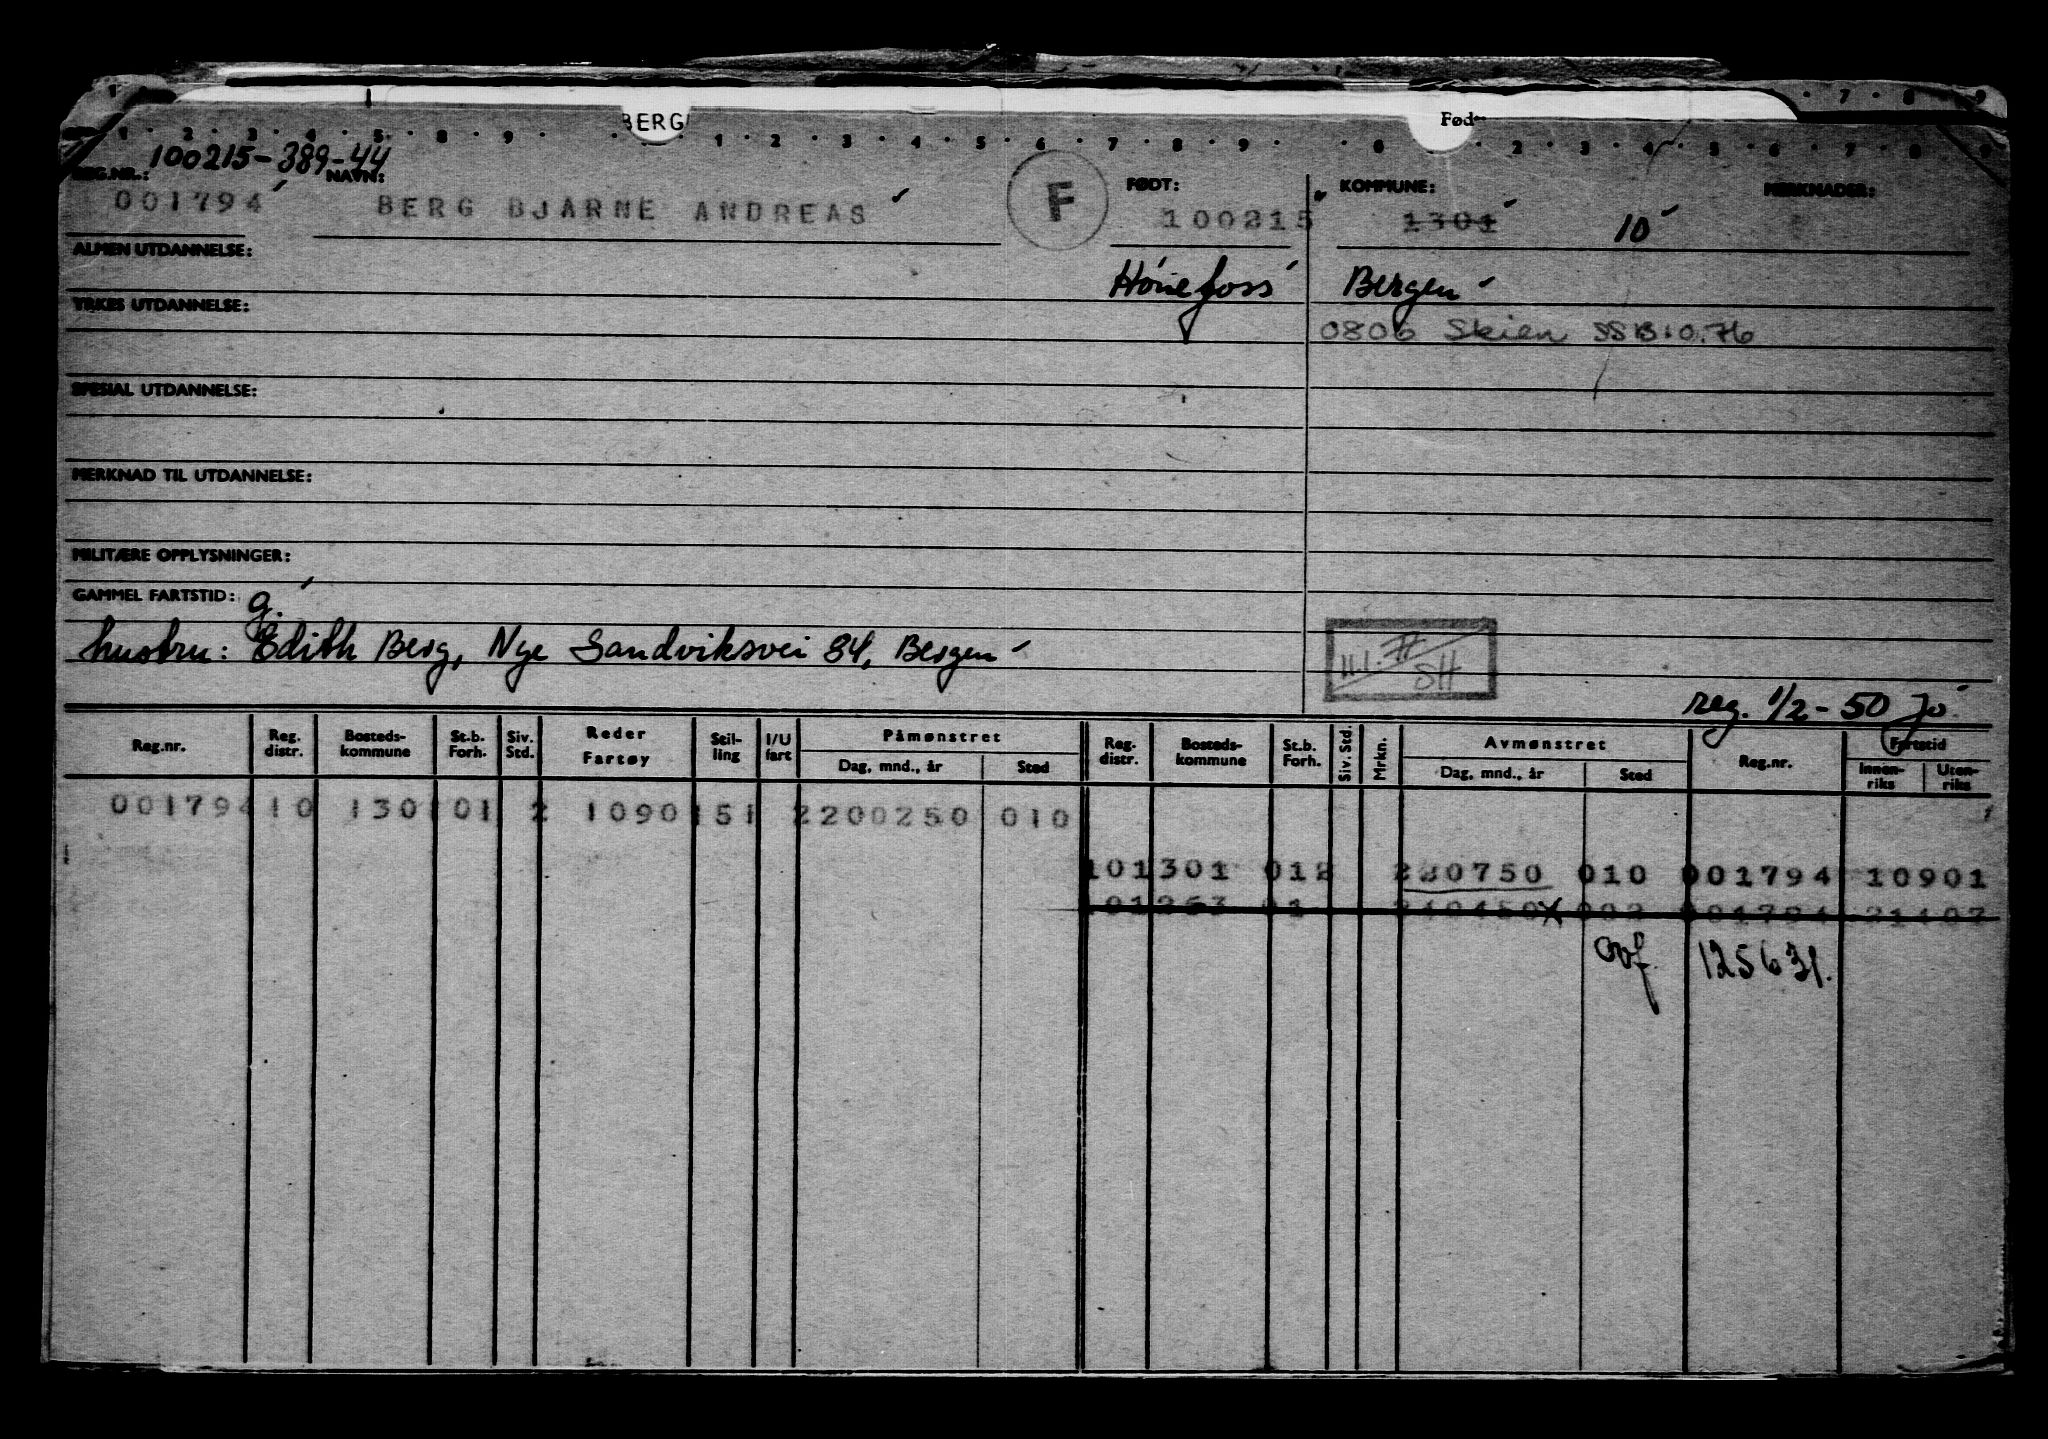 BERG Fød
100215-389-44
REG.NR.: NAVN: FØDT: KOMMUNE: MERKNADER:
001794 BERG BJARNE ANDREAS F 100215 1301 10
ALMEN UTDANNELSE: Hønefoss Bergen
YRKES UTDANNELSE:
0806 Skien
SPESIAL UTDANNELSE:
MERKNAD TIL UTDANNELSE:
MILITÆRE OPPLYSNINGER:
GAMMEL FARTSTID: g.
hustru: Edith Berg, Nye Sandviksvei 84, Bergen
11.1.77 SH
reg. 1/2-50 jo
Reg.nr. Reg. distr. Bosteds-kommune St.b. Forh. Siv. Std. Reder Fartøy Stil-ling I/U fart Påmønstret Dag, mnd., år Sted Reg. distr. Bosteds-kommune St.b. Forh. Siv. Std. Mrkn. Avmønstret Dag, mnd., år Sted Reg.nr. Fartstid Innen-riks Uten-riks
001794 10 130 01 2 1090 151 2200250 010
101301 012 010 001794 10901
125631.